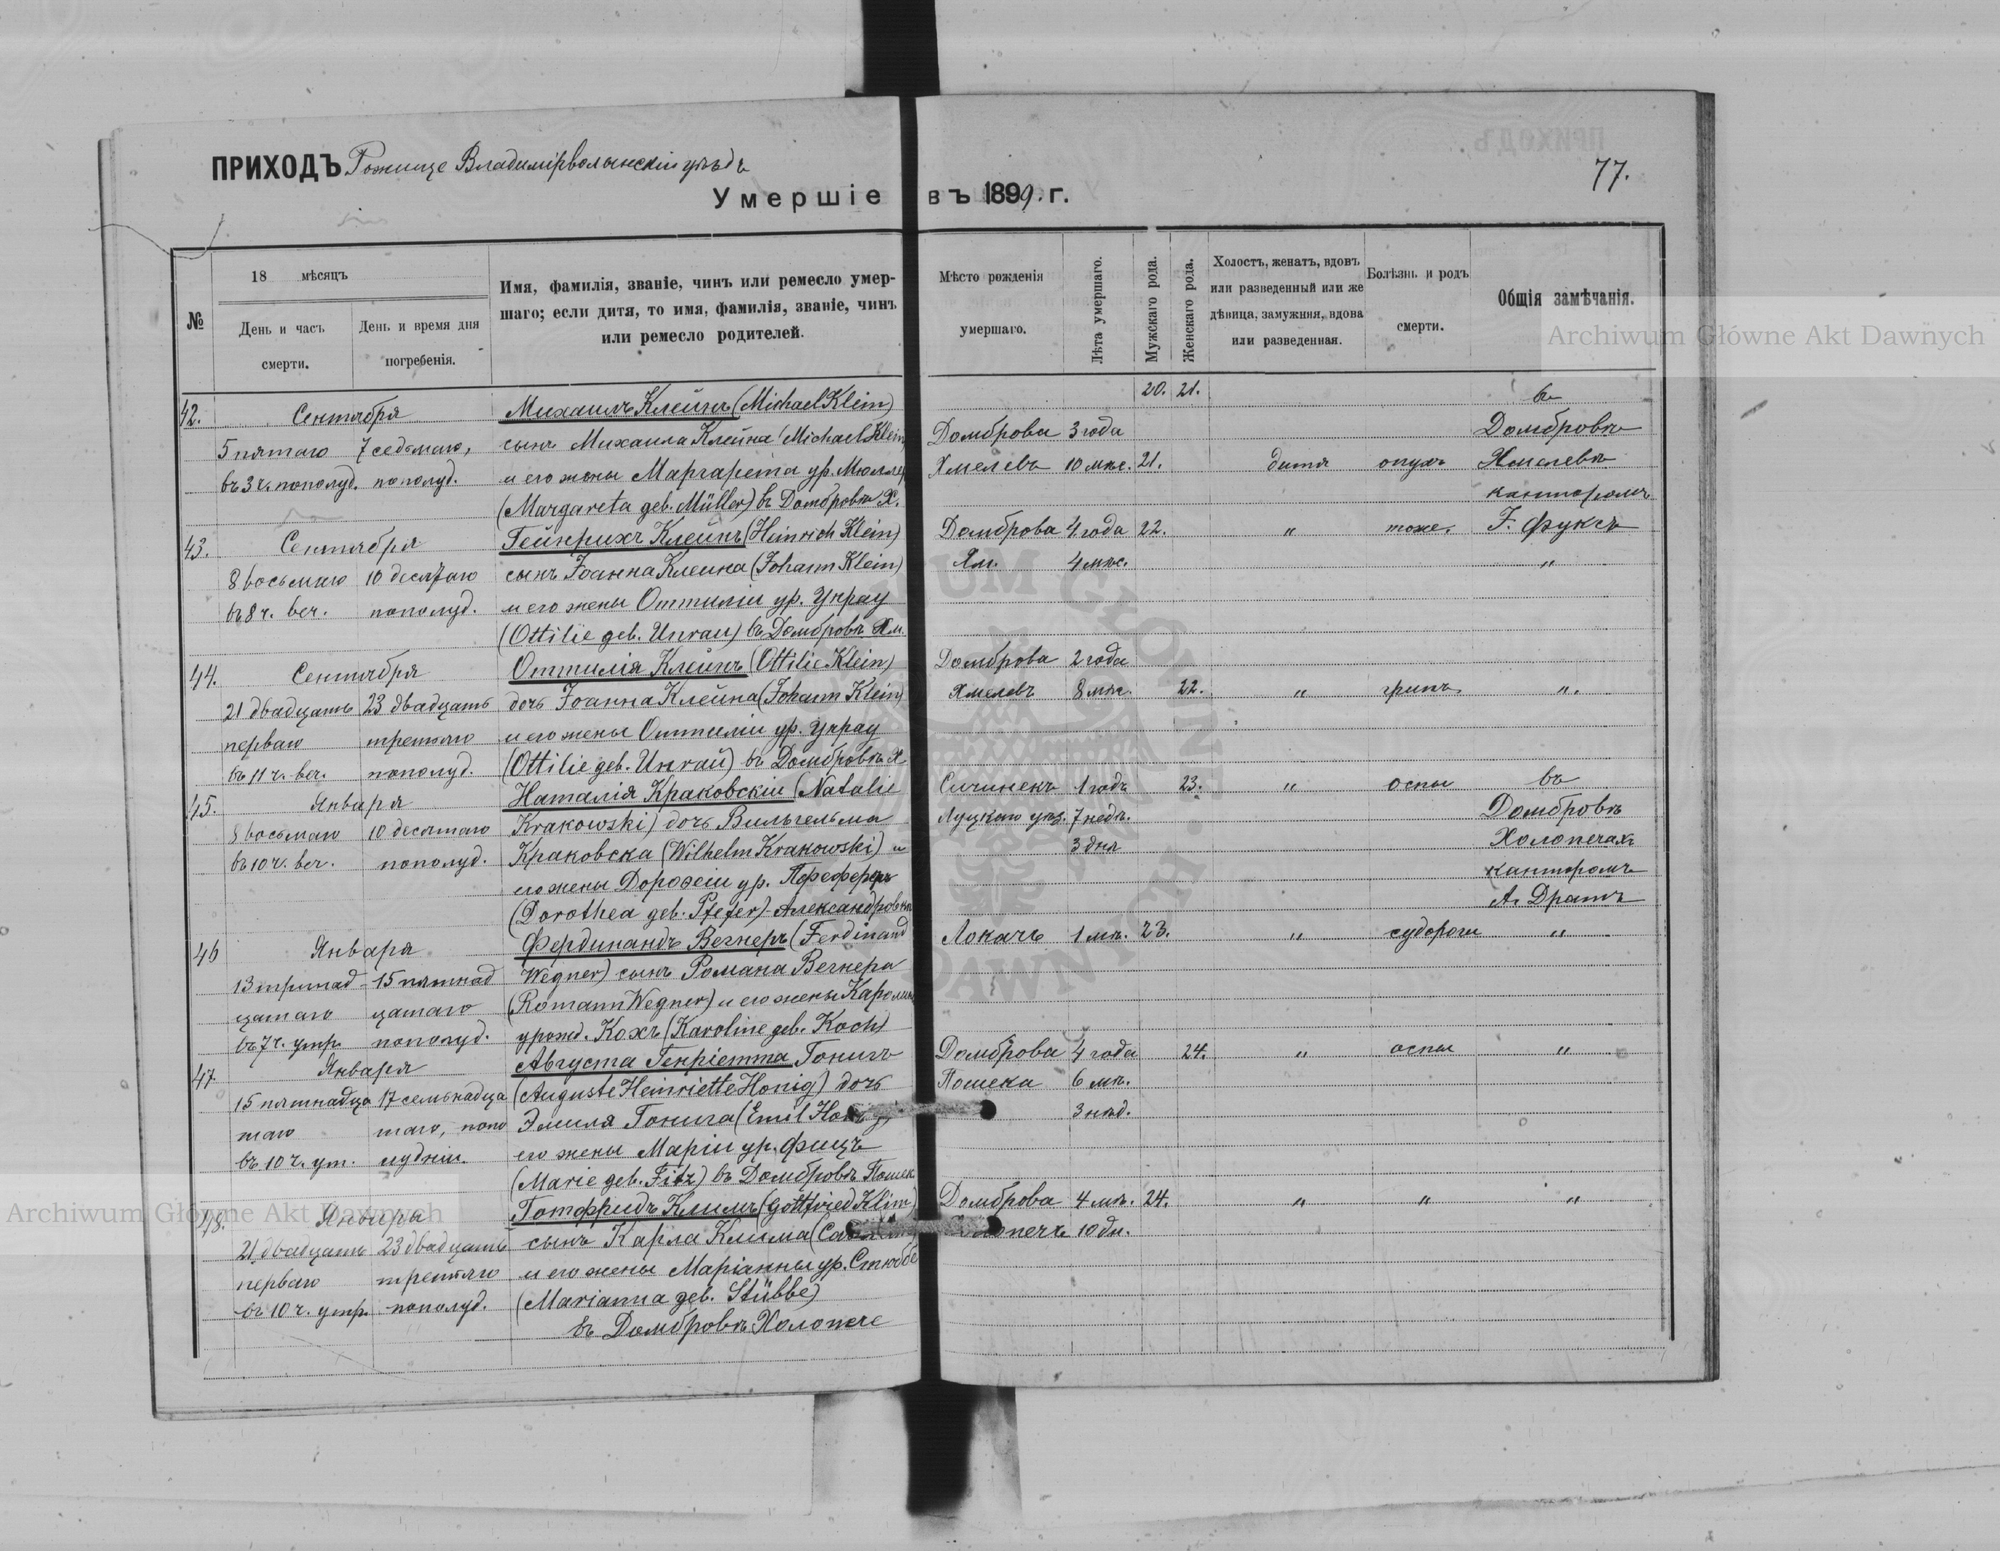 ПРИХОДЪ Рожище Владимірволынскій уѣздъ
77.
Умершіе въ 1899. г.
№
18 мѣсяцъ
День и часъ смерти.
День и время дня погребенія.
Имя, фамилія, званіе, чинъ или ремесло умер-
шаго; если дитя, то имя, фамилія, званіе, чинъ
или ремесло родителей.
Мѣсто рожденія
умершаго.
Лѣта умершаго.
Мужскаго рода.
Женскаго рода.
Холостъ, женатъ, вдовъ
или разведенный или же
дѣвица, замужняя, вдова
или разведенная.
Болѣзнь и родъ
смерти.
Общія замѣчанія.
Archiwum Główne Akt Dawnych
20. 21.
42. Сентября Михаилъ Клейнъ (Michael Klein) въ
5 пятаго 7 седьмаго, сынъ Михаила Клейна (Michael Klein) Домброва 3 года Домбровкѣ
въ 3 ч. пополуд. пополуд. и его жены Маргарета ур. Мюллеръ Хмелевъ 10 мѣс. 21. дитя опухъ Хмелевѣ
(Margareta geb. Müller) въ Домбровкѣ Х. канторомъ
43. Сентября Гейнрихъ Клейнъ (Heinrich Klein) Домброва 4 года 22. " тоже. F. Фуксъ
8 восьмаго 10 десятаго сынъ Іоанна Клейна (Johann Klein) Хм. 4 мѣс. "
въ 8 ч. веч. пополуд. и его жены Оттиліи ур. Унрау
(Ottilie geb. Unrau) въ Домбровкѣ Хм.
44. Сентября Оттилія Клейнъ (Ottilie Klein) Домброва 2 года
21 двадцать 23 двадцать дочь Іоанна Клейна (Johann Klein) Хмелевъ 8 мѣс. 22. " грипъ ".
перваго третьяго и его жены Оттиліи ур. Унрау
въ 11 ч. веч. пополуд. (Ottilie geb. Unrau) въ Домбровкѣ Х
45. Января Наталія Краковскій (Natalie 1 годъ 23. " оспы въ
8 восьмаго 10 десятаго Krakowski) дочь Вильгельма Луцкаго уѣз. 7 недѣ. Домбровкѣ
въ 10 ч. веч. пополуд. Краковска (Wilhelm Krakowski) и 3 дня Холопечахъ
его жены Доротеи ур. Пфеферъ канторомъ
(Dorothea geb. Pfefer) Александровкѣ А. Дратъ
46 Января Фердинандъ Вегнеръ (Ferdinand Локачъ 1 мѣ. 23. " судороги "
13 тринад- 15 пятнад Wegner) сынъ Романа Вегнера
цатаго цатаго (Romann Wegner) и его жены Каролины
въ 7 ч. утр. пополуд. урожд. Кохъ (Karoline geb. Koch)
47. Января Августа Генріетта Гонигъ Домброва 4 года 24. " оспы "
15 пятнадца 17 семьнадца (Auguste Heinriette Honig) дочь 6 мѣ.
таго таго, попо Эмиля Гонига (Emil 3 нѣд.
въ 10 ч. ут. лудніи. его жены Маріи ур. Фицъ
(Marie geb. Fitz) въ Домбровкѣ
48. Января Готфридъ Климъ (Gottfried Klim) Домброва 4 мѣ. 24. " " "
21 двадцать 23 двадцать сынъ Карла Клима 10 дн.
перваго третьяго и его жены Маріанны ур. Стюббе
въ 10 ч. утр. пополуд. (Marianna geb. Stübbe)
въ Домбровкѣ Холопече
Archiwum Główne Akt Dawnych